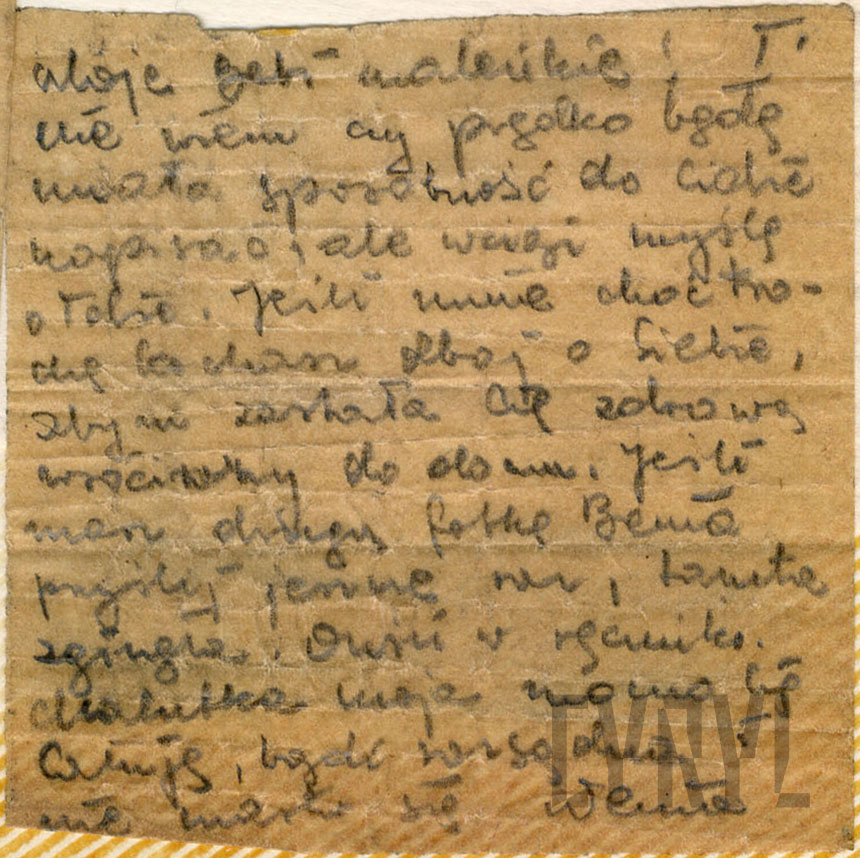 moje geś maleńkie! T.
nie wiem czy prędko będę
miała sposobność do Ciebie
napisać, ale wciąż myślę
o Tobie. Jeśli mnie choć tro-
chę kochasz dbaj o siebie,
abym zastała Cię zdrową
wróciwszy do domu. Jeśli
masz drugą fotkę Benia
przyślij jeszcze raz, tamta
zginęła. Dusii w ręczniku.
Malutka moja mama Cię
całuje, bądź rozsądna i
nie martw się
TYRYL